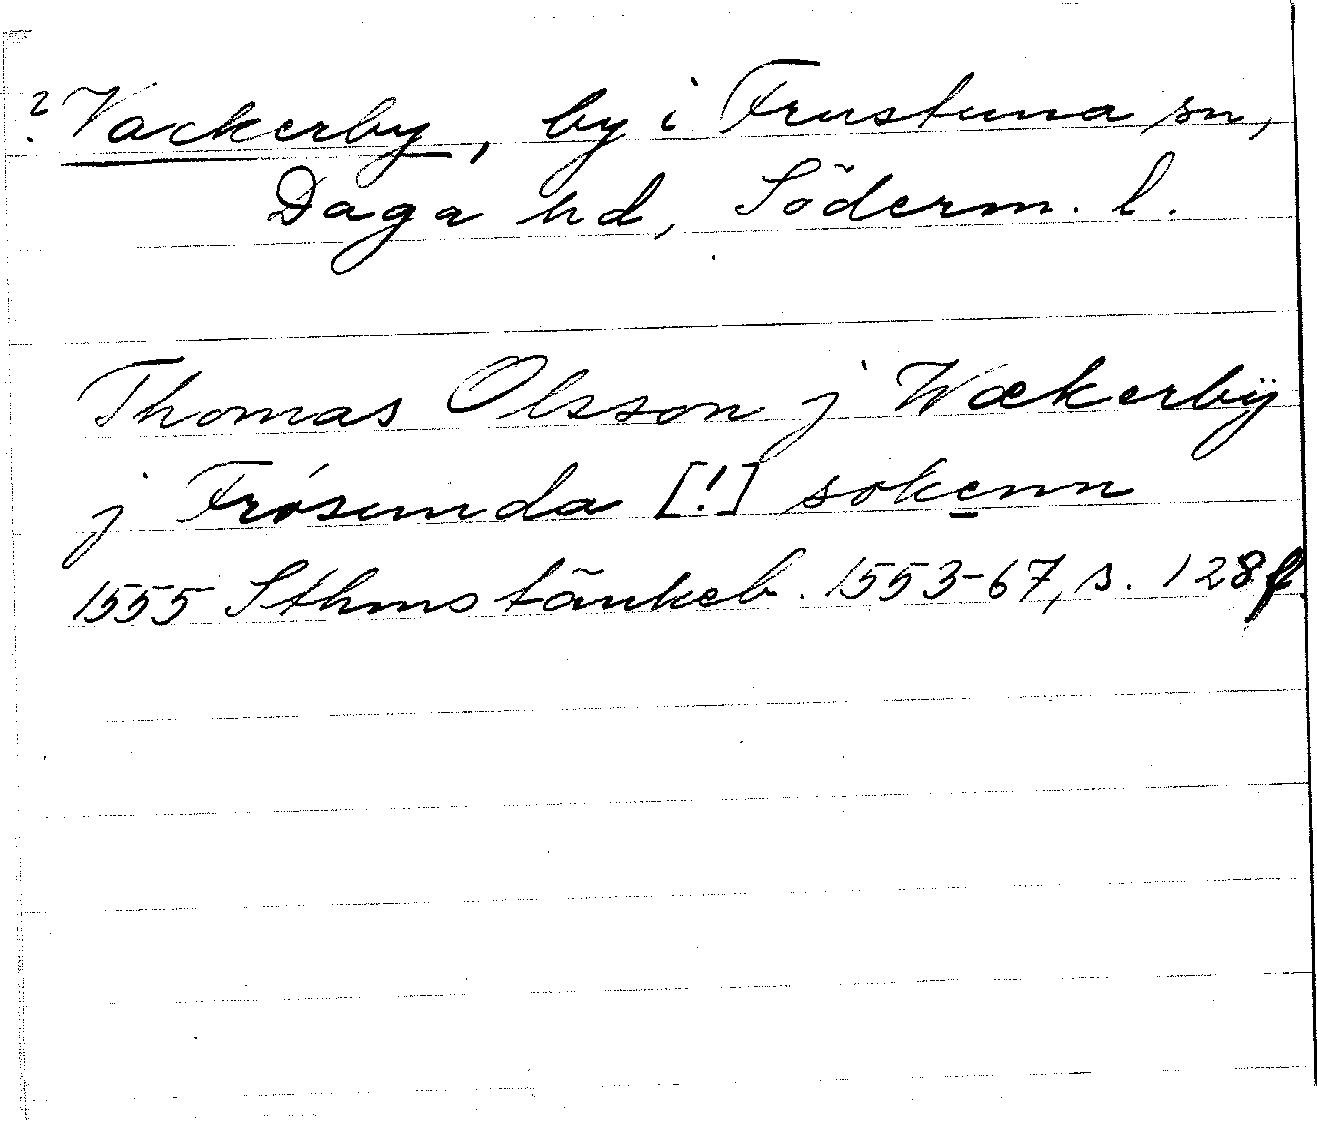 ? Vackerby, by i Frustuna sn,
Daga hd, Söderm. l.
Thomas Olsson j Wækerbÿ
j Frösunda [!] sokenn
1555 Sthms tänkeb. 1553-67, s. 128 f.